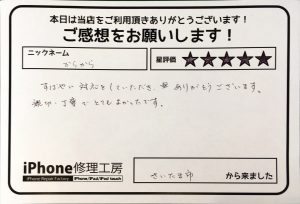 本日は当店をご利用頂きありがとうございます!
ご感想をお願いします!
ニックネーム
からから
星評価
★★★★★
すばやい 対応をしていただき、ありがとうございます。
親切・丁寧でとてもよかったです。
iPhone修理工房
iPhone Repair Factory iPhone/iPad/iPod touch
さいたま市 から来ました